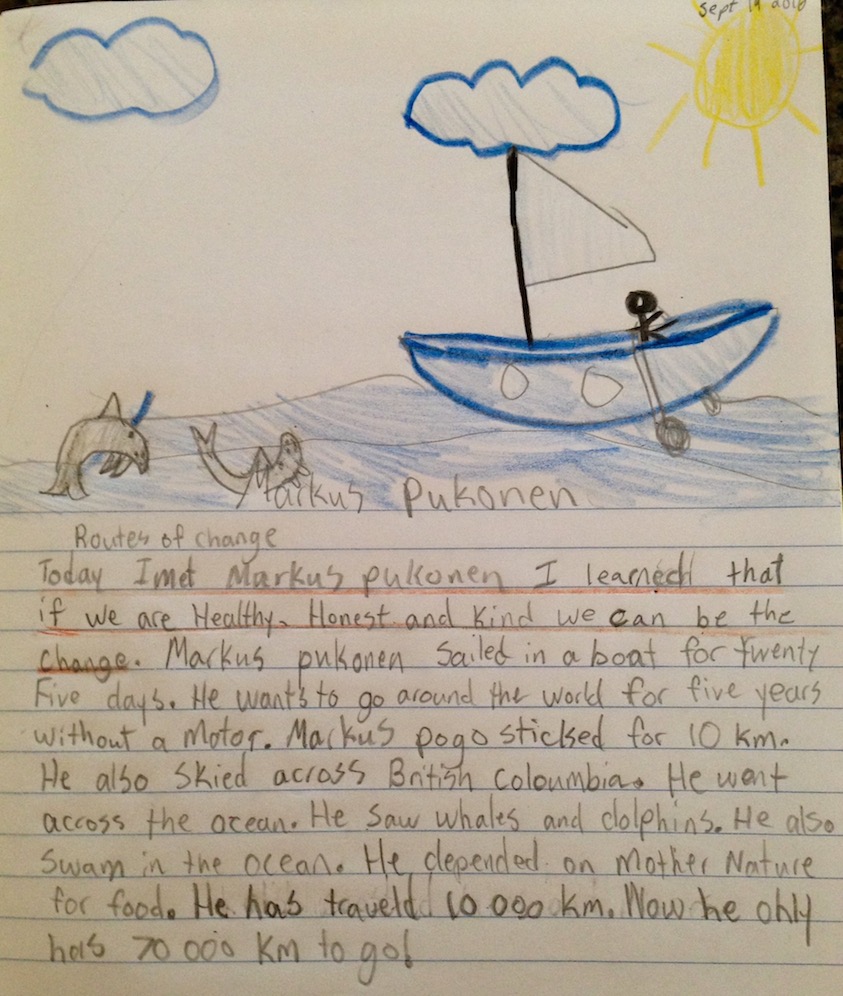 Sept 19 2016
Markus Pukonen
Routes of change
Today I met Markus pukonen I learned that
if we are Healthy. Honest and kind we can be the
change. Markus pukonen Sailed in a boat for twenty
Five days. He wants to go around the world for five years
without a Motor. Markus pogo sticked for 10 km.
He also skied across British coloumbia. He went
across the ocean. He saw whales and dolphins. He also
Swam in the ocean. He depended on Mother Nature
for food. He has traveld 10 000 km. Now he only
has 70 000 km to go!